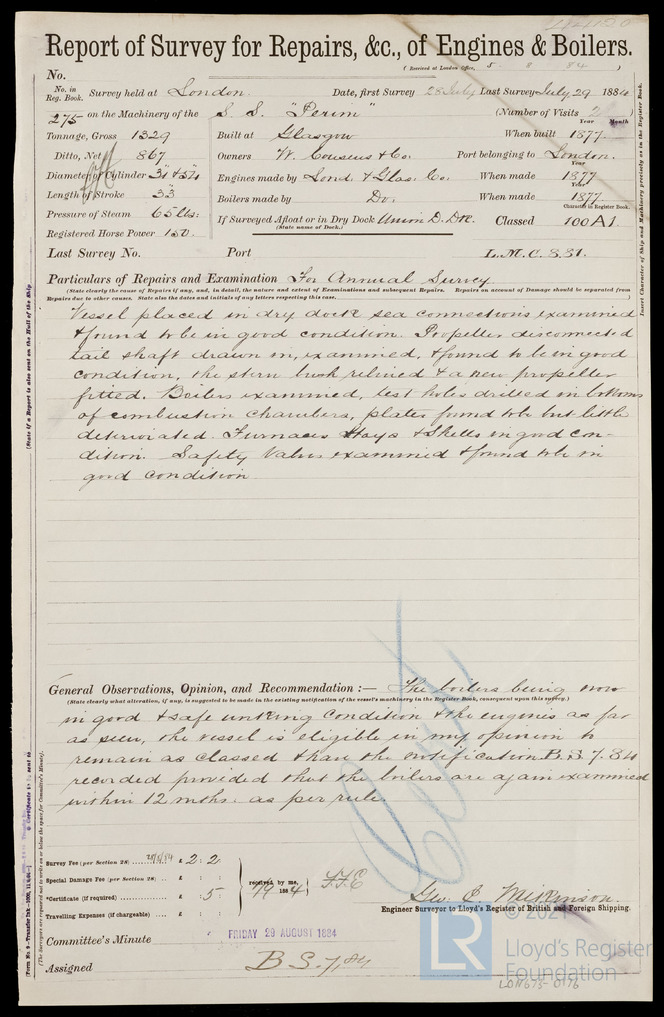 Report of Survey for Repairs, &c., of Engines & Boilers.
(Received at London Office, 84)
No.
No. in Reg. Book. Survey held at London. Date, first Survey 28 July Last Survey July 29 1884
275 on the Machinery of the S. S. "Perim" (Number of Visits 2
Year Month
Tonnage, Gross 1329 Built at Glasgow When built 1877
Ditto, Net 867 Owners W. Cousins & Co. Port belonging to London.
Year
Diameter of Cylinder 31" & 57" Engines made by Lond. & Glas. Co. When made 1877
Year
Length of Stroke 33" Boilers made by Do. When made 1877
Character in Register Book.
Pressure of Steam 65 lbs: If Surveyed Afloat or in Dry Dock Union D. Dk. Classed 100 A1.
(State name of Dock.)
Registered Horse Power 150.
Last Survey No. Port L.M.C. 8.81.
Particulars of Repairs and Examination For Annual Survey
(State clearly the cause of Repairs if any, and, in detail, the nature and extent of Examinations and subsequent Repairs. Repairs on account of Damage should be separated from
Repairs due to other causes. State also the dates and initials of any letters respecting this case.)
Vessel placed in dry dock sea connections examined
& found to be in good condition. Propeller disconnected
tail shaft drawn in, examined, & found to be in good
condition, the stern bush relined & a new propeller
fitted. Boilers examined, test holes drilled in bottoms
of combustion chambers, plates found to be but little
deteriorated. Furnaces Stays & Shells in good con-
dition. Safety Valves examined & found to be in
good condition
General Observations, Opinion, and Recommendation :— The boilers being now
(State clearly what alteration, if any, is suggested to be made in the existing notification of the vessel's machinery in the Register Book, consequent upon this survey.)
in good & safe working condition & the engines as far
as seen, the vessel is eligible in my opinion to
remain as classed & have the notification B.S. 7.84
recorded provided that the boilers are again examined
within 12 mths. as per rule.
Survey Fee (per Section 28) £ 2 : 2 :
Special Damage Fee (per Section 28) £ : :
*Certificate (if required) £ : 5 :
Travelling Expenses (if chargeable) £ : :
received by me,
1884
Geo. C. Milkinson.
Engineer Surveyor to Lloyd's Register of British and Foreign Shipping.
Committee's Minute FRIDAY 29 AUGUST 1884
Assigned B.S. 7.84
(State if a Report is also sent on the Hull of the Ship
Insert Character of Ship and Machinery precisely as in the Register Book.
(The Surveyors are requested not to write on or below the space for Committee's Minute.)
© 2021
LR
Lloyd's Register
Foundation
LON675-0176